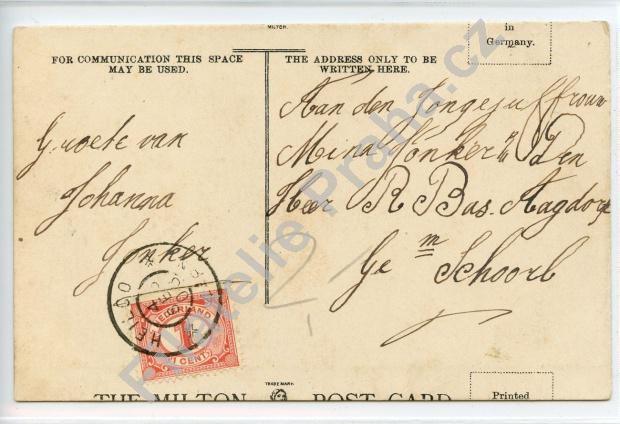 MILTON
in
Germany.
FOR COMMUNICATION THIS SPACE
MAY BE USED.
THE ADDRESS ONLY TO BE
WRITTEN HERE.
Groete van
Johanna
Jonker
Aan den Jongejuffrouw
Mina Jonker Den
Heer R Bas. Aagdorp
Ge m
Schoorl
HEILOO
NEDERLAND
1
CENT
TRADE MARK
THE MILTON POST CARD
Printed
Filatelie Praha.cz